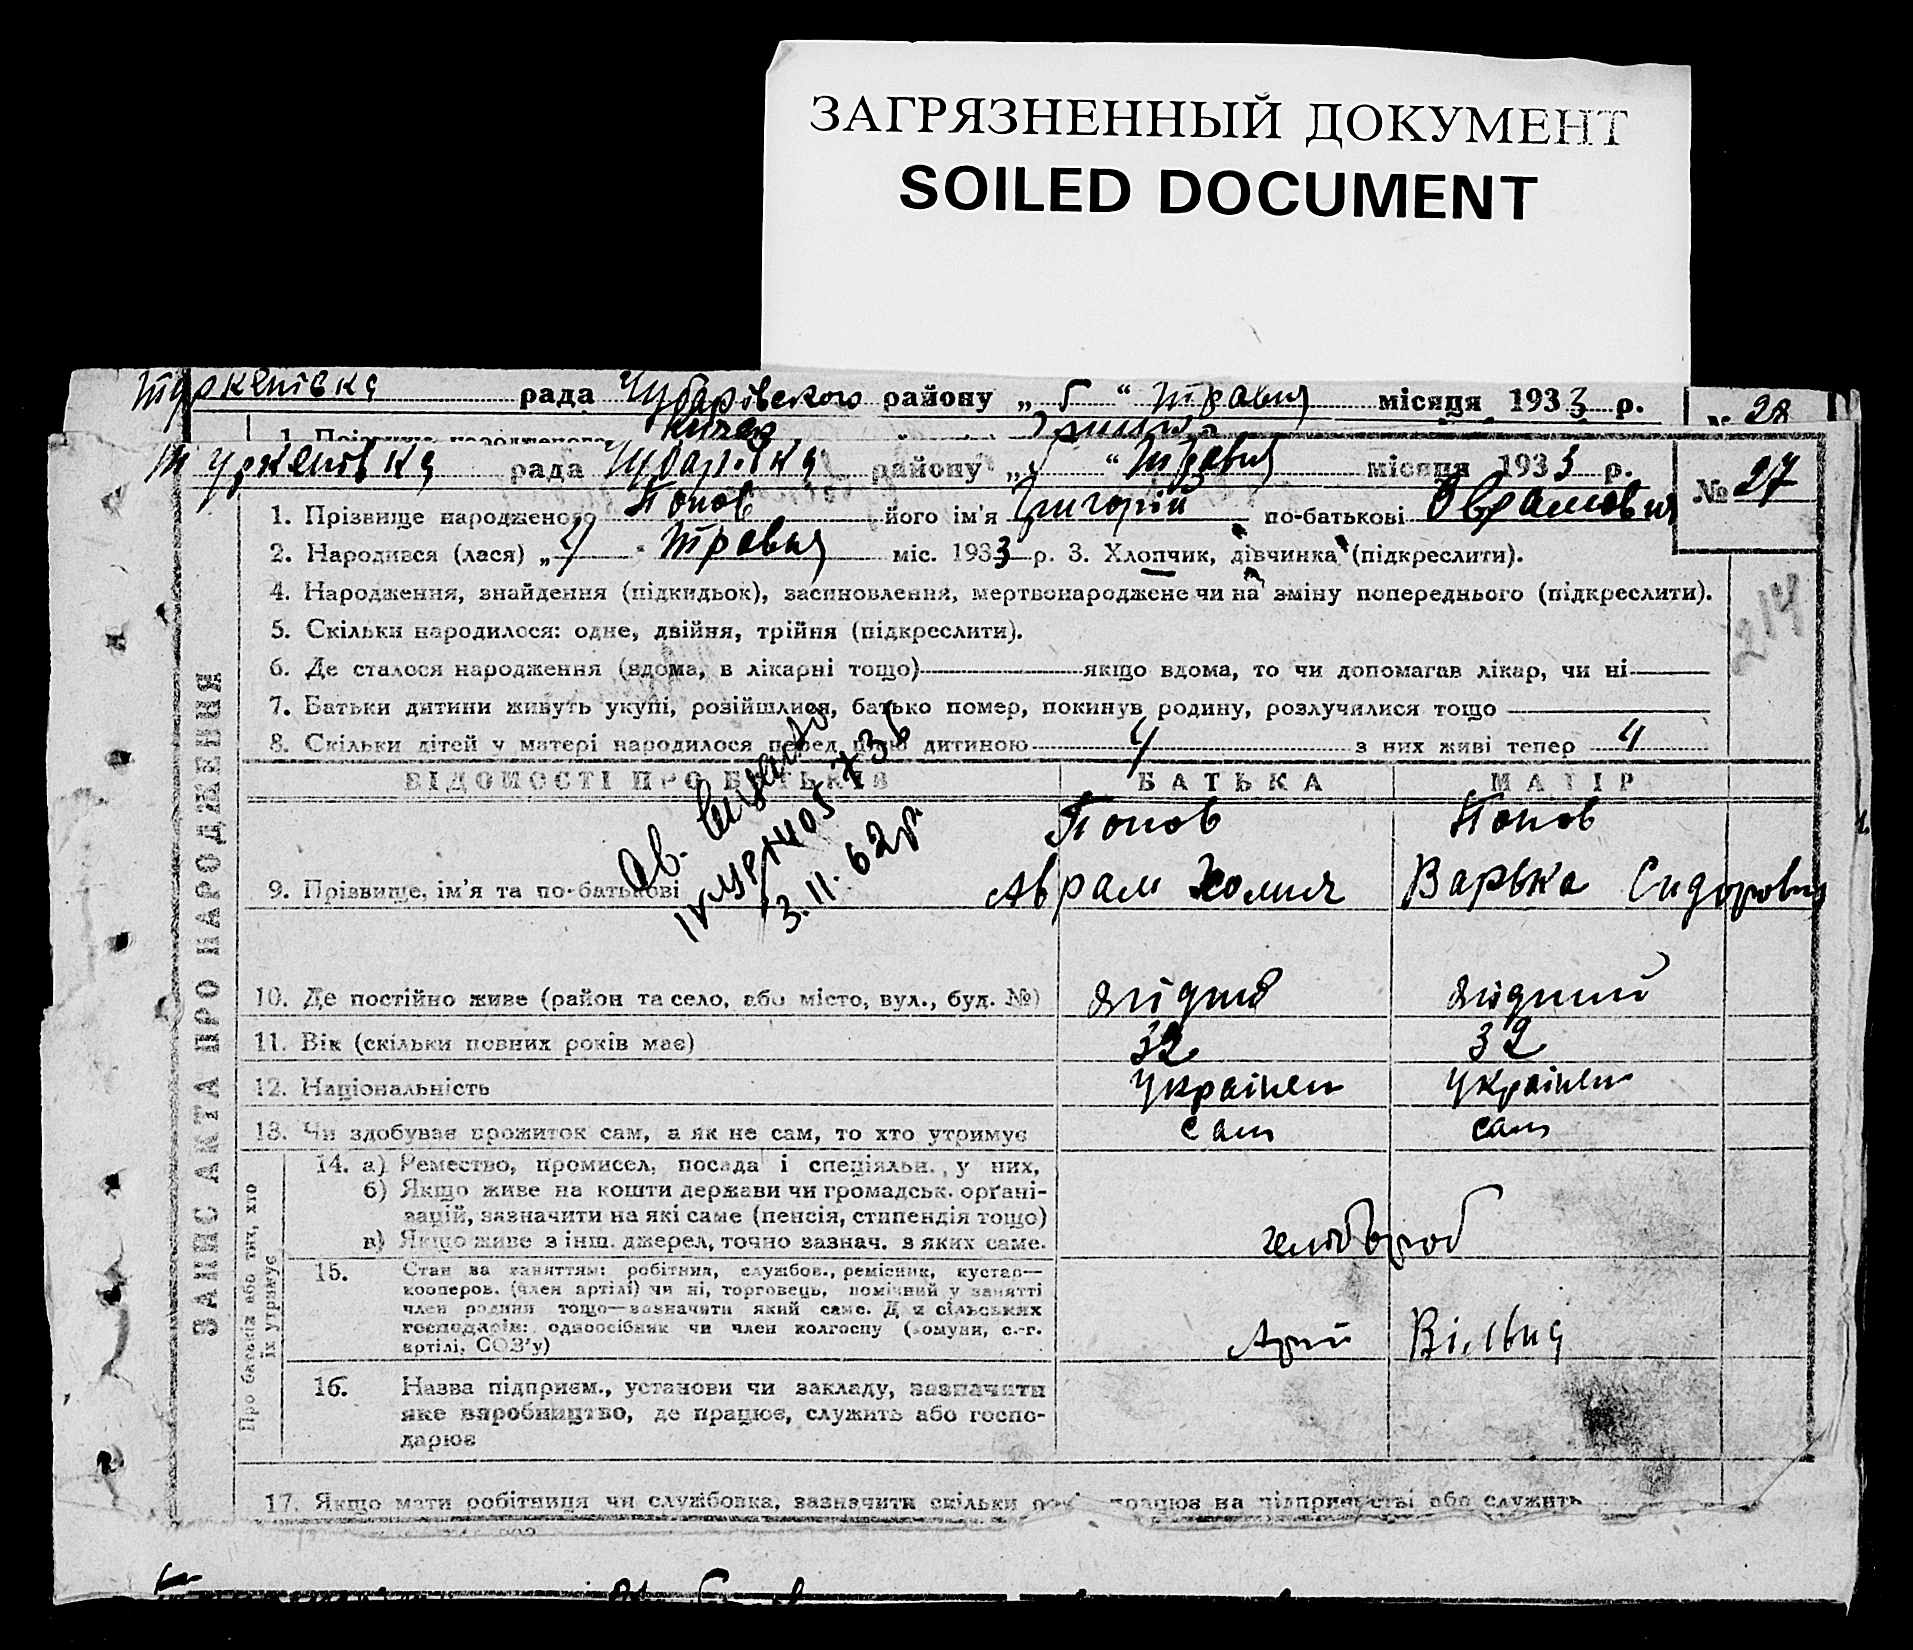 ЗАГРЯЗНЕННЫЙ ДОКУМЕНТ
SOILED DOCUMENT
Туркенівка рада Чубарівского району „ 5 “ Травня місяця 1933 р. № 28
Туркенівка рада Чубарівка району „ “ Травня місяця 1933 р. № 27
1. Прізвище народженого Попов його ім'я Григорій по-батькові Оврамовия
2. Народився (лася) „ “ Травня міс. 1933 р. 3. Хлопчик, дівчинка (підкреслити).
4. Народження, знайдення (підкидьок), засиновлення, мертвонароджене чи на зміну попереднього (підкреслити).
214
5. Скільки народилося: одне, двійня, трійня (підкреслити).
6. Де сталося народження (вдома, в лікарні тощо) якщо вдома, то чи допомагав лікар, чи ні
7. Батьки дитини живуть укупі, розійшлися, батько помер, покинув родину, розлучилися тощо
8. Скільки дітей у матері народилося перед цією дитиною 4 з них живі тепер 4
ВІДОМОСТІ ПРО БАТЬКІВ БАТЬКА МАТІР
Попов Попов
9. Прізвище, ім'я та по-батькові Аврам Хомич Варька Сидоровна
3.11.62р
10. Де постійно живе (район та село, або місто, вул., буд. №)
11. Вік (скільки повних років має) 32 32
12. Національність Українец Українец
13. Чи здобуває прожиток сам, а як не сам, то хто утримує сам сам
ЗАПИС АКТА ПРО НАРОДЖЕННЯ
Про батьків або тих, хто їх утримує
14. а) Ремество, промисел, посада і спеціяльн., у них,
б) Якщо живе на кошти держави чи громадськ. орґані-
зацій, зазначити на які саме (пенсія, стипендія тощо)
в) Якщо живе з інш. джерел, точно зазнач. з яких саме. хлібороб
15. Стан за заняттям: робітник, службов., ремісник, кустар—
кооперов. (член артілі) чи ні, торговець, помічний у занятті
член родини тощо—зазначити який саме. Для сільських
господарів: одноосібник чи член колгоспу (комуни, с.-г.
артілі, СОЗ'у)
16. Назва підприєм., установи чи закладу, зазначити
яке виробництво, де працює, служить або госпо-
дарює
17. Якщо мати робітниця чи службовка, зазначити скільки працює на підприємстві або служить